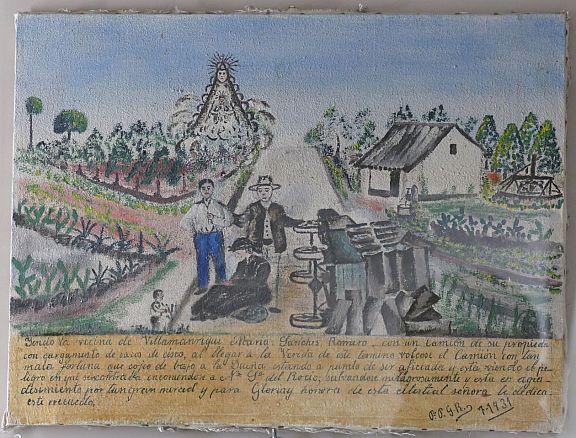 Yendo la vecina de Villamanrique, Maria Sanchis Romero, con un Camión de su propieda
con cargamento de sacos de cisco, al llegar a la Vereda de este termino volcose el Camión con tan
mala fortuna que cojio de bajo a la Dueña estando a punto de ser asficiada y esta viendo el pe
ligro en que se encontraba encomendose a Nª Sª del Rocio, salvandose milagrosamente y esta en agra
desimiento por tan gran merced y para Gloria y honora de esta celestial señora le dedica
este recuerdo.
1931